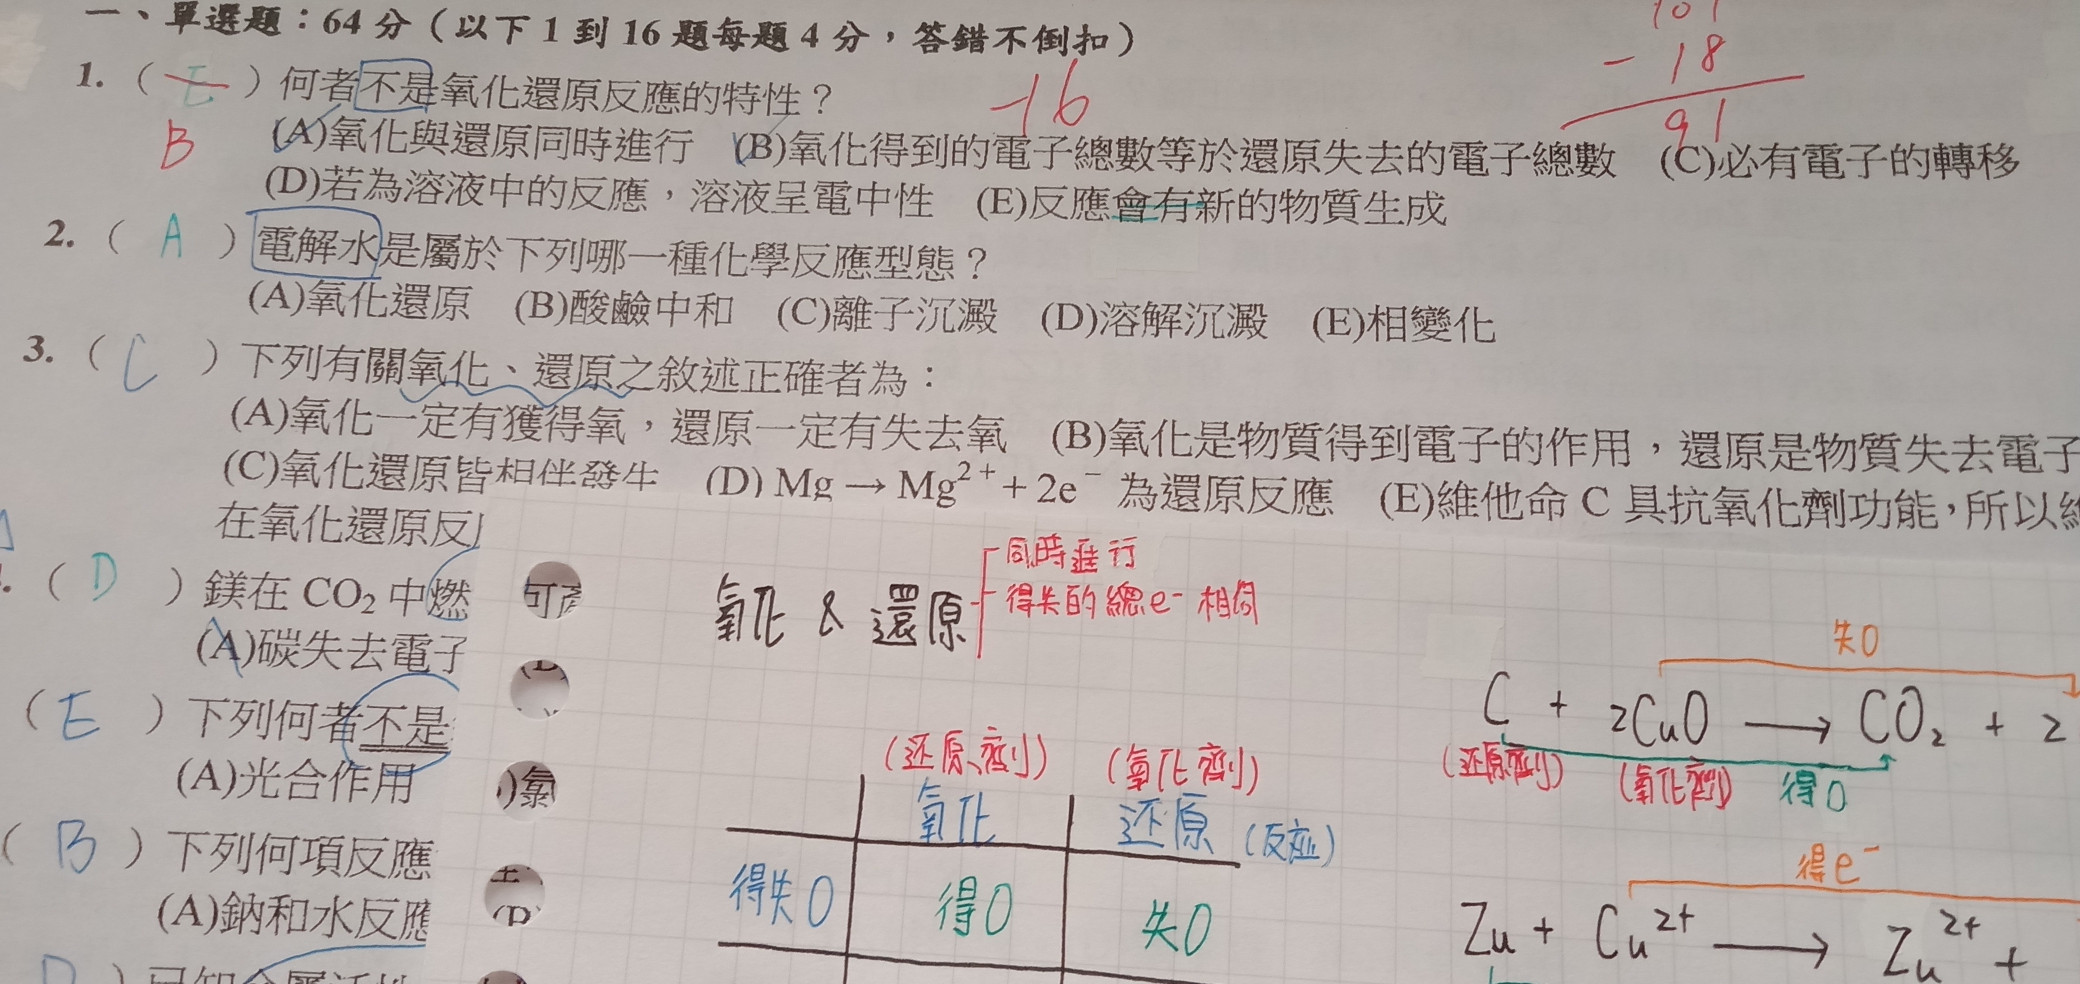 一、單選題：64 分（以下 1 到 16 題每題 4 分，答錯不倒扣）
101
- 18
91
-16
1. （ E ）何者不是氧化還原反應的特性？
B
(A)氧化與還原同時進行 (B)氧化得到的電子總數等於還原失去的電子總數 (C)必有電子的轉移
(D)若為溶液中的反應，溶液呈電中性 (E)反應會有新的物質生成
2. （ A ）電解水是屬於下列哪一種化學反應型態？
(A)氧化還原 (B)酸鹼中和 (C)離子沉澱 (D)溶解沉澱 (E)相變化
3. （ C ）下列有關氧化、還原之敘述正確者為：
(A)氧化一定有獲得氧，還原一定有失去氧 (B)氧化是物質得到電子的作用，還原是物質失去電子
(C)氧化還原皆相伴發生 (D) Mg → Mg²⁺ + 2e⁻ 為還原反應 (E)維他命 C 具抗氧化劑功能，所以維
在氧化還原反
（ D ）鎂在 CO₂ 中燃
(A)碳失去電子
（ E ）下列何者不是
(A)光合作用
（ B ）下列何項反應
(A)鈉和水反應
氧化 & 還原
同時進行
得失的總e⁻相同
失O
C + 2CuO → CO₂ + 2
(还原劑) (氧化劑) 得O
(还原劑) (氧化劑)
氧化 还原 (反应)
得失O 得O 失O
得e⁻
Zn + Cu²⁺ → Zn²⁺ +